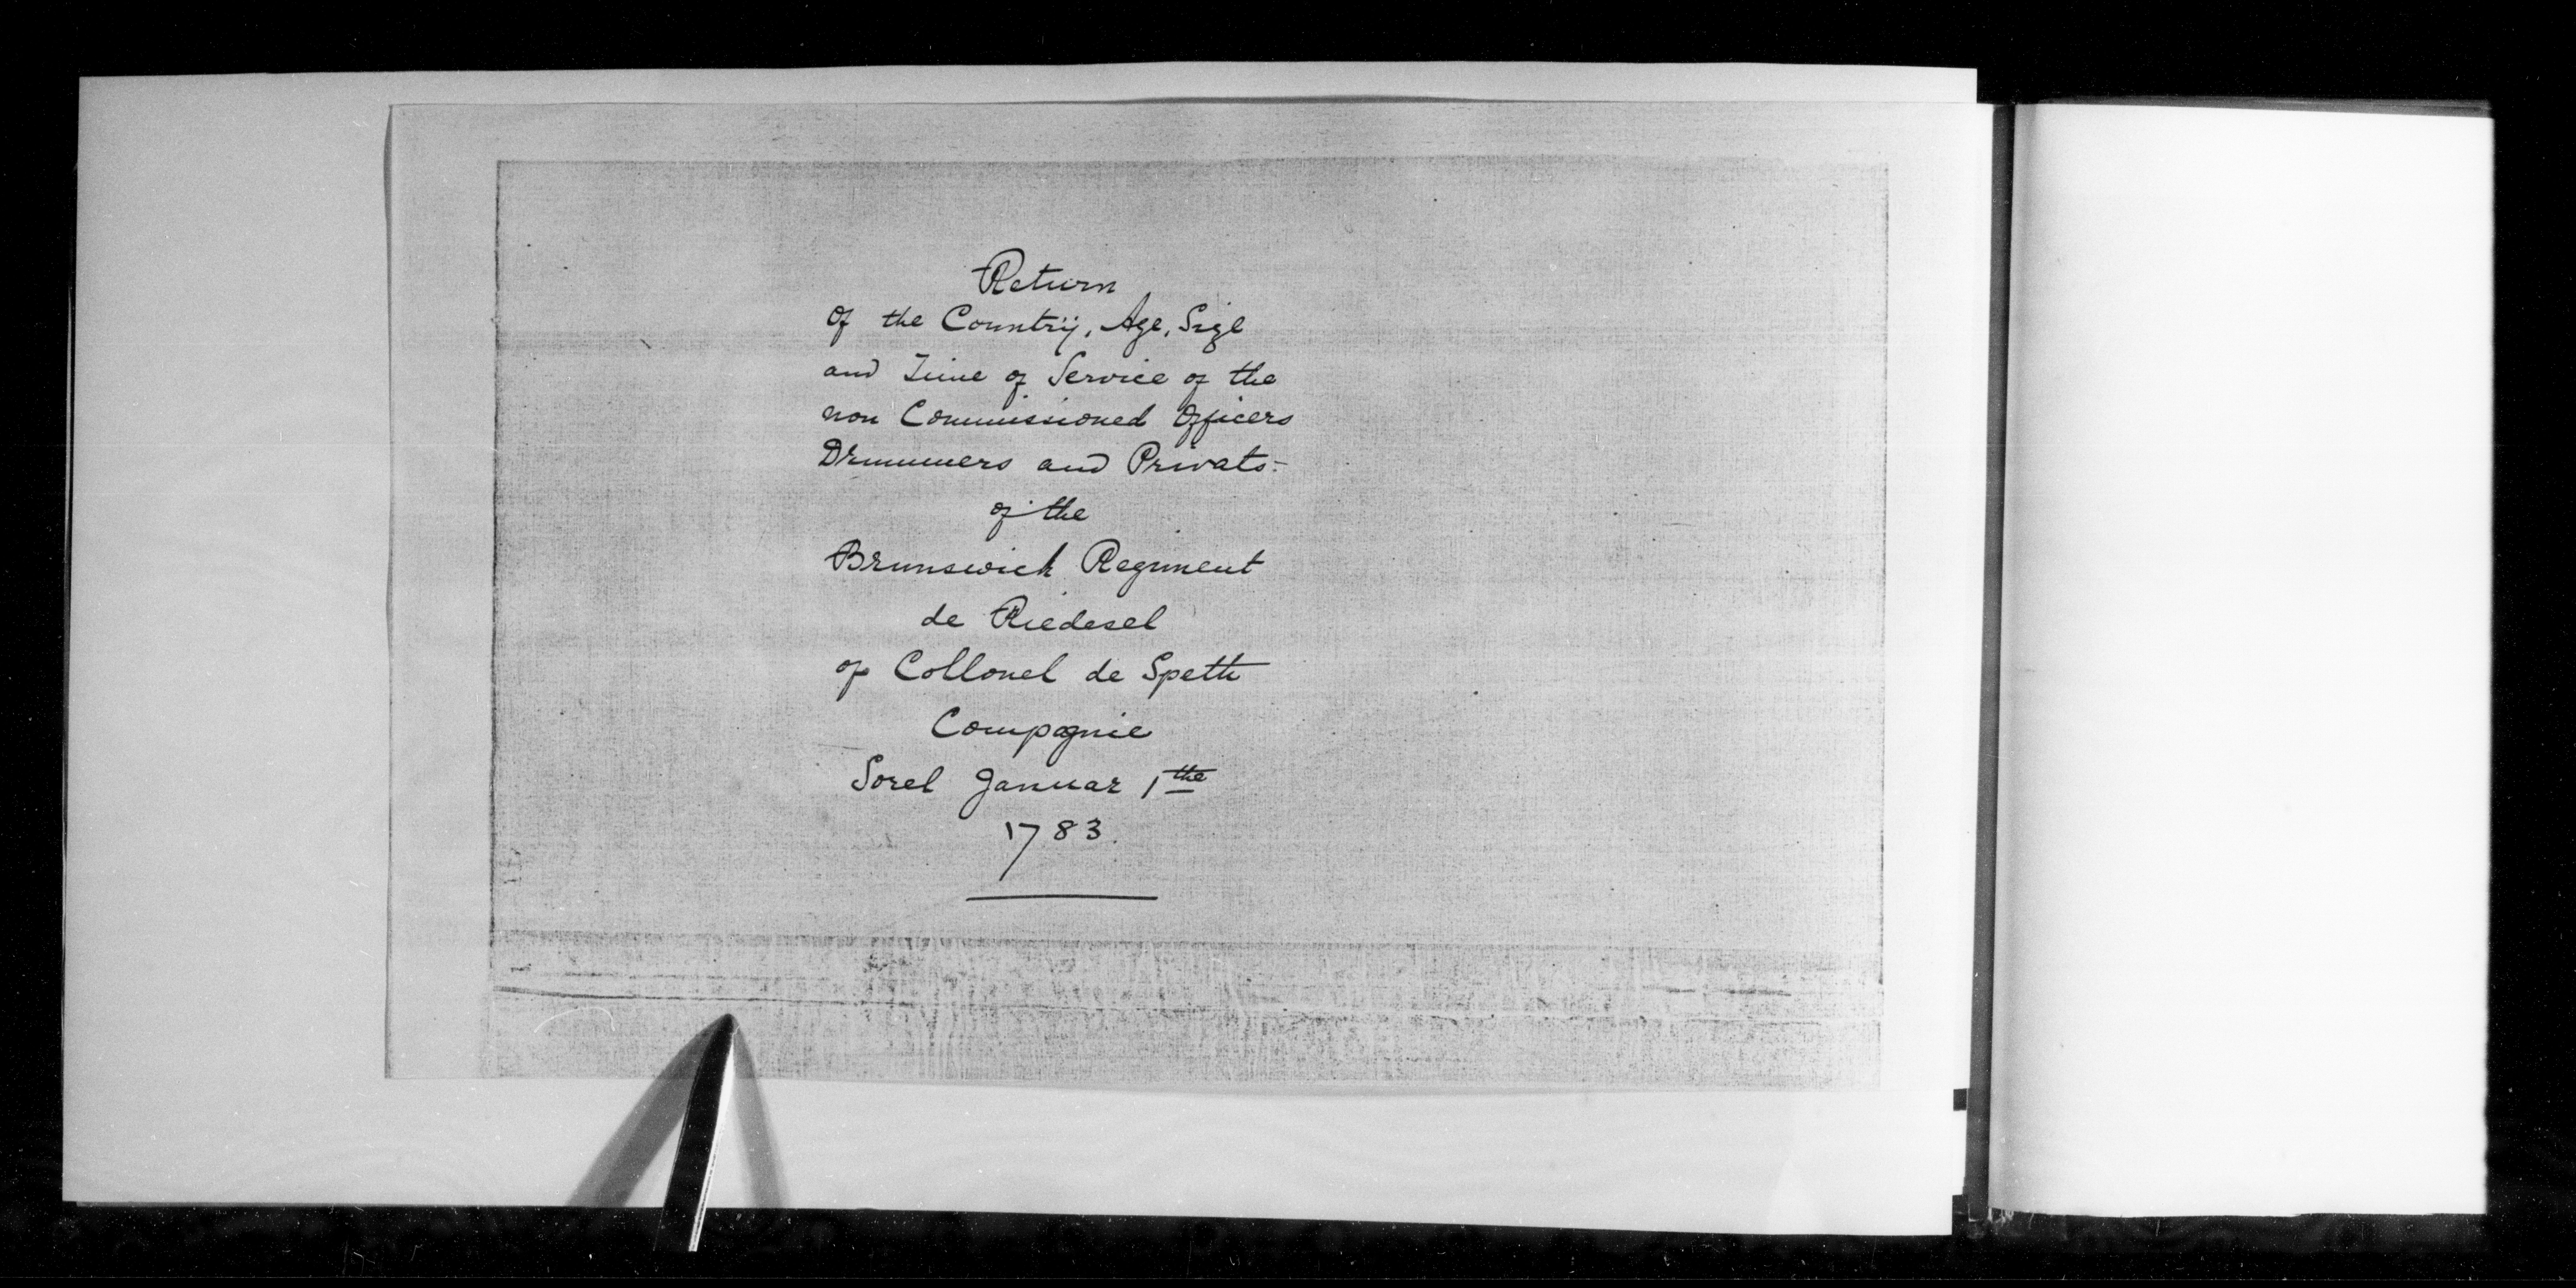 Return
Of the Countrÿ, Age, Size
and Time of Service of the
non Commissioned Officers
Drummers and Privats-
of the
Brunswick Regiment
de Riedesel
of Collonel de Speth
Compagnie
Sorel Januar 1the
1783.